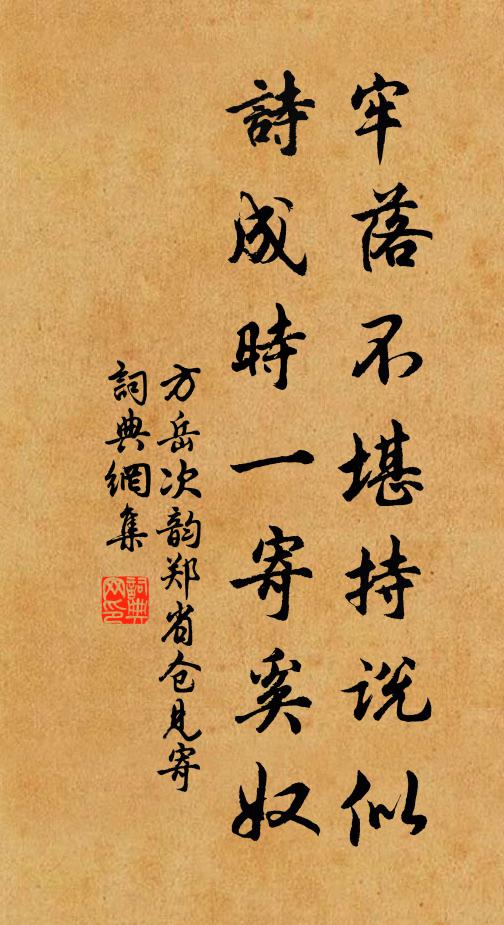 牢落不堪持说似
詩成時一寄奚奴
方岳次韵郑省仓见寄
詞典網集
詞典網印